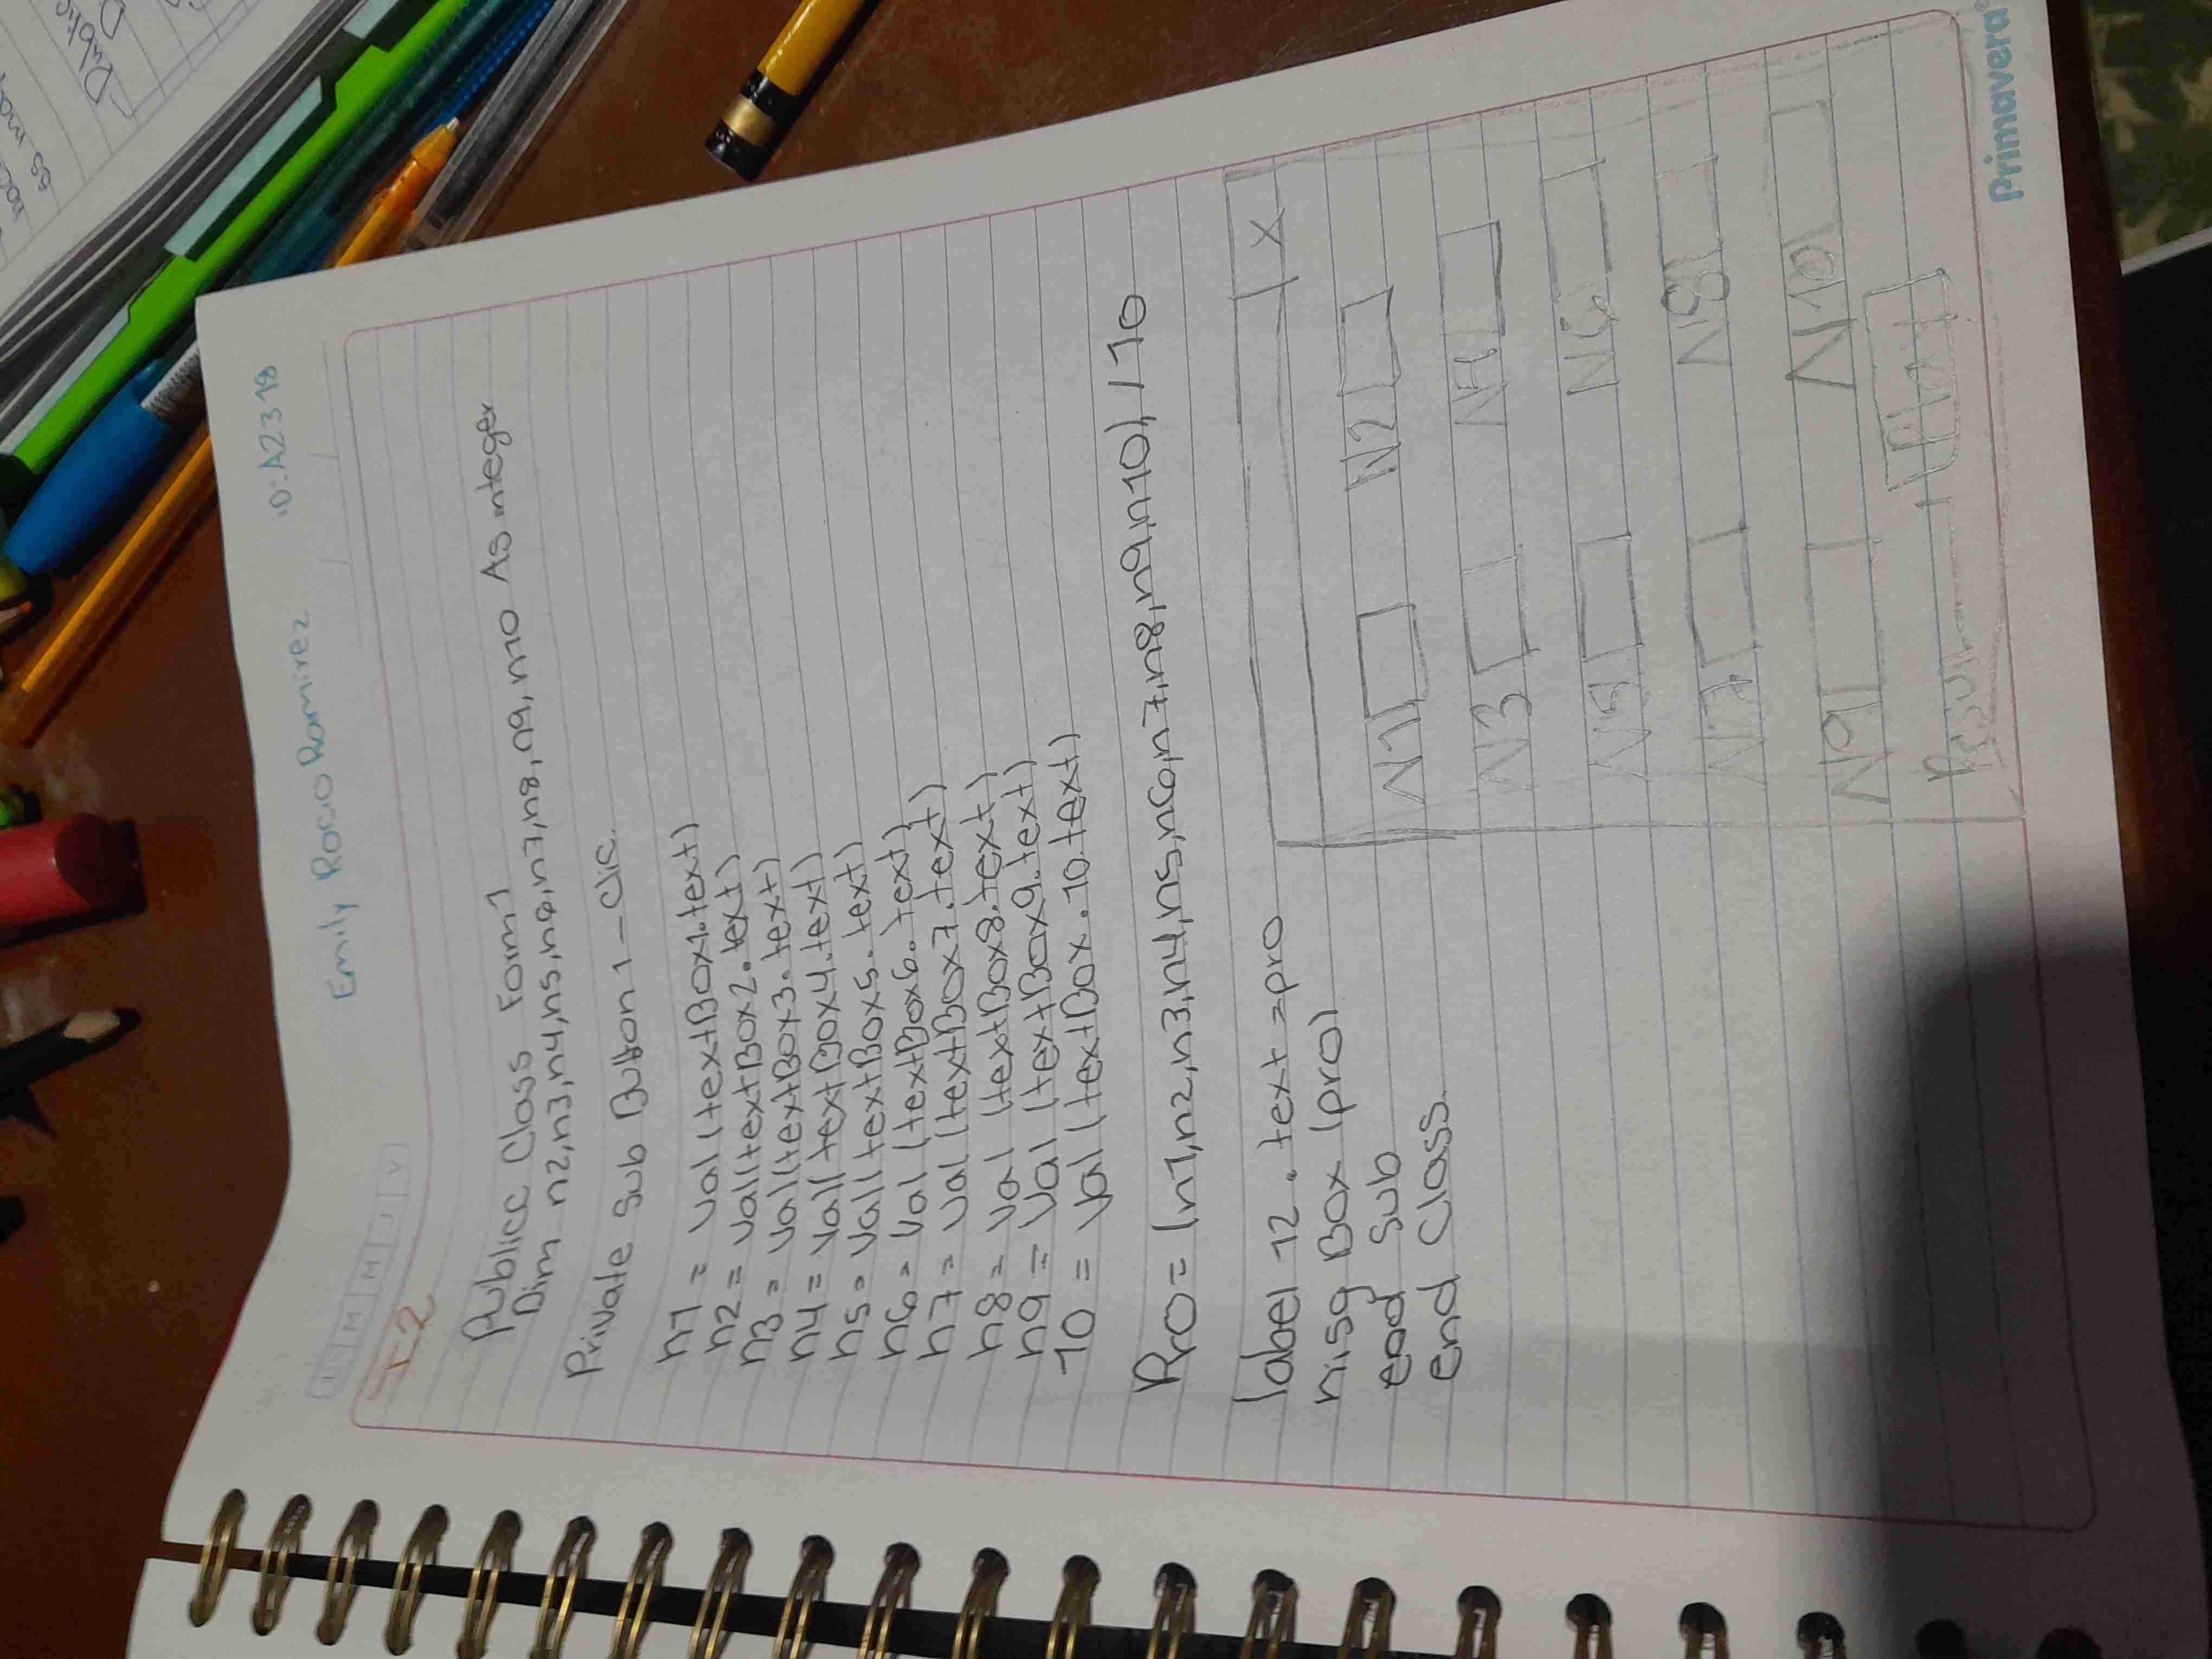 Emily Rocio Ramirez iD:A2318
L M M J V
T-2
Publicc Class Form1
Dim n2,n3,n4,n5,n6,n7,n8,n9,n10 As integer
Private sub Button1-clic
n1 = val(textBox1.text)
n2 = val(textBox2.text)
n3 = val(textBox3.text)
n4 = val(textBox4.text)
n5 = val(textBox5.text)
n6 = val(textBox6.text)
n7 = val(textBox7.text)
n8 = val (textBox8.text)
n9 = val (textBox9.text)
10 = val(textBox.10.text)
Pro = (n1,n2,n3,n4,n5,n6,n7,n8,n9,n10)/10
label 12.text=pro
misg Box (pro)
end sub
end class
X
N1 N2
N3 N4
N5 N6
N7 N8
N9 N10
Primavera